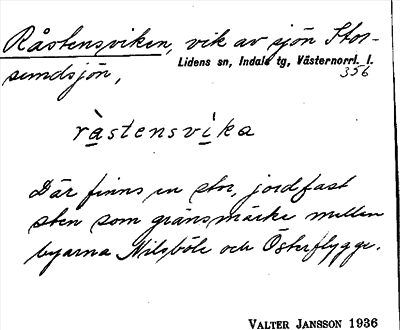 Råstensviken, vik av sjön Stor-
Lidens sn, Indals tg, Västernorrl. l.
sundsjön,
356
ràstensvika
Där finns en stor, jordfast
sten som gränsmärke mellan
byarna Nilsböle och Österflygge.
VALTER JANSSON 1936